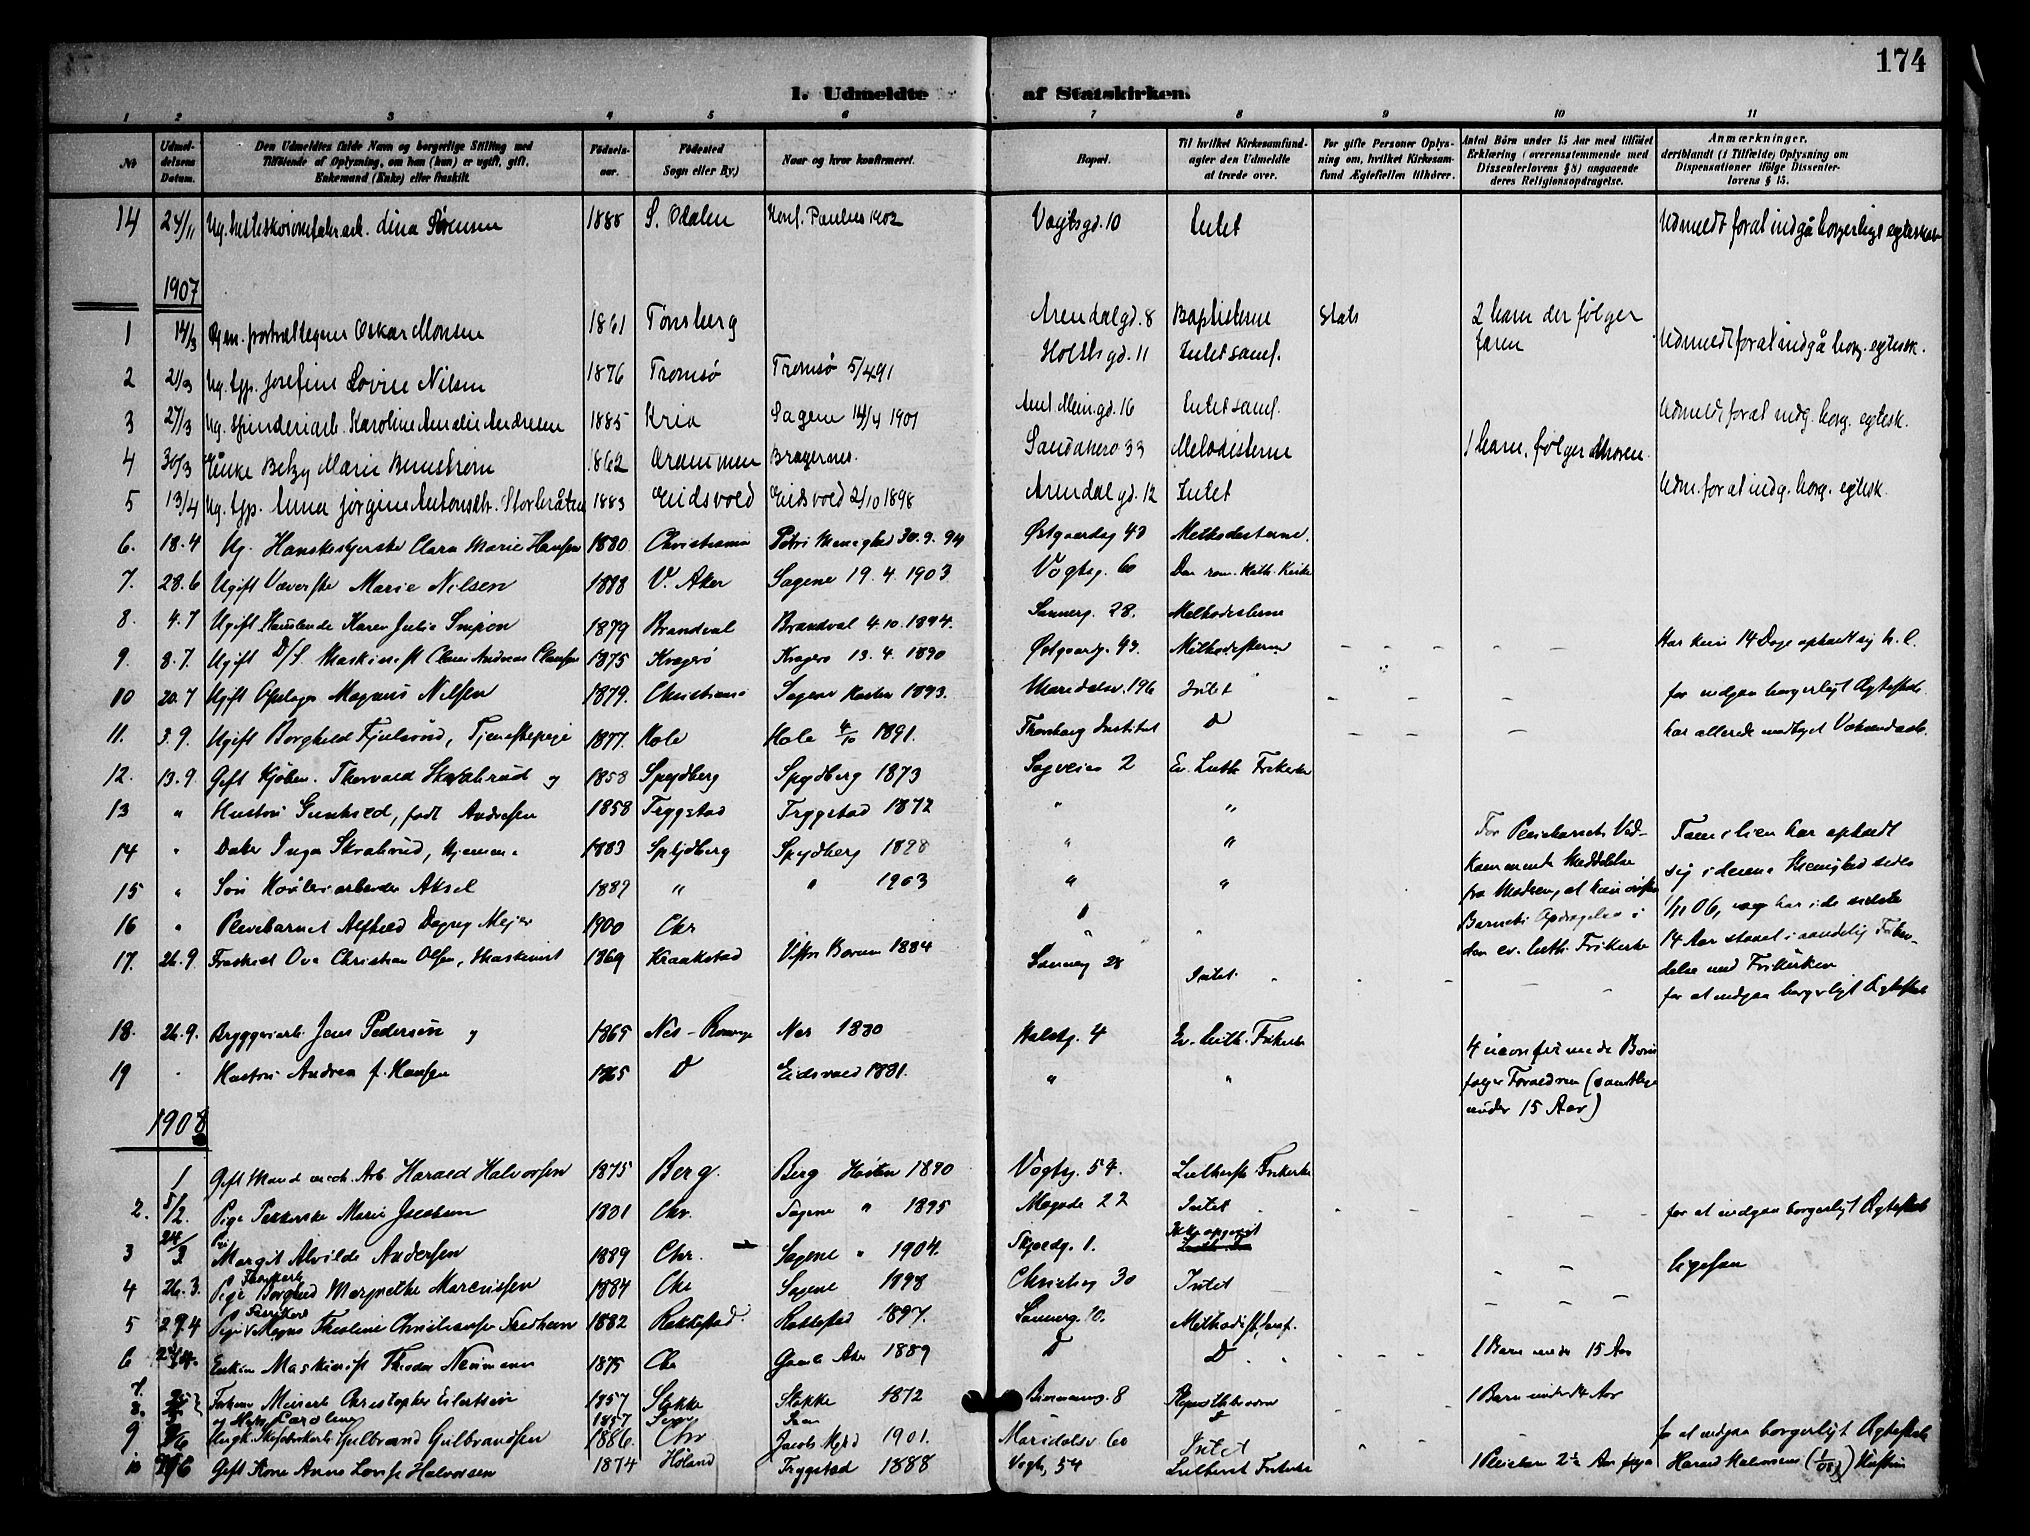 174
1. Udmeldte af Statskirken.
1 2 3 4 5 6 7 8 9 10 11
No Udmeldelsens Datum. Den Udmeldtes fulde Navn og borgerlige Stilling med Tilføiende af Oplysning, om han (hun) er ugift, gift, Enkemand (Enke) eller fraskilt. Fødselsaar. Fødested Sogn eller By.) Naar og hvor konfirmeret. Bopæl. Til hvilket Kirkesamfund agter den Udmeldte at træde over. For gifte Personer Oplysning om, hvilket Kirkesamfund Ægtefællen tilhører. Antal Börn under 15 Aar med tilføiet Erklæring (overensstemmende med Dissenterlovens § 8) angaaende deres Religionsopdragelse. Anmærkninger, deriblandt (i Tilfælde) Oplysning om Dispensationer ifølge Dissenterlovens § 15.
14 24/11 Ug. hesteskosømfabr.arb. Lina Sørensen 1888 S. Odalen Konf. Paulus 1902 Vogtsgd. 10 Intet Udmeldt for at indgå borgerligt egteskab
1907
1 14/3 portrættegner Oskar Monsen 1861 Tønsberg Arendalgd. 8 Baptisterne Stats 2 barn der følger faren
2 21/3 Ug. typ. Josefine Lovise Nilsen 1876 Tromsø Tromsø 5/4 91 Holstsgd. 11 Intet samf. Udmeldt for at indgå borg. egtesk.
3 27/3 Ug. spinderiarb. Karoline Amalie Andresen 1885 Kria Sagene 14/4 1901 16 Intet samf. Udmeldt for at indg. borg. egtesk.
4 30/3 Enke Betzy Marie 1862 Drammen Bragernes Sandakerv 33 Metodisterne 1 barn, følger moren
5 13/4 Ug. typ. Anna Jørgine Antonsdt. Storbråten 1883 Eidsvold Eidsvold 2/10 1898 Arendalgd. 12 Intet Udm. for at indg. borg. egtesk.
6. 18.4 Ug. Hanskesyerske Clara Marie Hansen 1880 Christiania Petri Menighed 30.9.94 Østgaardsg 43 Methodisterne.
7. 28.6 Ugift Væverske Marie Nilsen 1888 V. Aker Sagene 19.4.1903 Vogtsg. 60 Den rom. Kath. Kirke
8. 4.7 Ugift Karen Julie 1879 Brandval Brandval 4.10.1894. Sannerg. 28. Methodisterne
9. 8.7. Ugift D/S Maskinist Claus Andreas Clausen 1875 Kragerø Kragerø 13.4.1890 Østgaardg. 43. Methodisterne Har kun 14 Dage opholdt sig h. l.
10 20.7 Ugift Opslager Magnus Nilsen 1879. Christiania Sagene Høsten 1893. Maridalsv. 196 Intet for indgaa borgerligt Ægteskab
11. 3.9. Ugift Borghild Fjeldsrud, Tjenestepige 1877. Hole Hole 4/10 1891. Thorshaug Institut D har allerede modtaget
12. 13.9. Gift Kjøbm. Thorvald Skralsrud og 1858 Spydberg Spydberg 1873 Sagveien 2 Ev. Luth. Frikirke
13 " Hustru Gunhild, født Andresen 1858 Trygstad Trygstad 1872 " "
14 " Datter Inga Skralsrud, hjemme. 1883 Spydberg Spydberg 1898 " " For Pleiebarnets Vedkommende Meddelelse Familien har opholdt
15 " Søn arbeider Aksel 1889 " " 1903 " " fra Moderen, at hun ønsker sig i denne Menighed siden
16 " Pleiebarnet Alfhild Dagny Mejer 1900 Chr " " Barnets Opdragelse i 1/11 06, og har i de sidste
17. 26.9. Fraskilt Ove Christian Olsen, Maskinist 1869 Kraakstad Vestre Bærum 1884 Sannerg 28 Intet den ev. luth. Frikirke 14 Aar staaet i aandelig Forbindelse med Frikirken
for at indgaa borgerligt Ægteskab
18. 26.9. Bryggeriarb. Jens Pedersen og 1865 Nes-Romerige Nes 1880 Holstsg. 4 Ev. luth. Frikirke 4 ukonfirmede Børn
19 " Hustru Andrea f. Hansen 1865 D Eidsvold 1881. " " følger Forældrene (samtlige
under 15 Aar)
1908
1 Gift Mand mek. Arb. Harald Halvorsen 1875 Berg. Berg Høsten 1890 Vogtsg. 54. Lutherske Frikirke
2. 5/2. Pige Marie Jacobsen 1881 Chr. Sagene " 1895 Magode 22 Intet for at indgaa borgerligt Ægteskab
3 24/3 Margit Alvilde Andersen 1889 Chr. Sagene " 1904. Skjoldg. 1. Ikke opgivet ligesaa
4 26.3. Pige Borghild Margrethe Marcussen 1884 Chr Sagene 1898 Christiesg 30 Intet
5 29.4 Pige Thesline Christiansen 1882 Rakkestad Rakkestad 1897. Sannerg. 10. Methodist. samf.
6 Enkem. Maskinist Theodor Neumann 1875 Chr Gamle Aker 1889 D D 1 Barn under 15 Aar
7. Christopher Eilertsen 1857 Stokke Stokke 1872 8 1 Barn under 14 Aar
8. og Karoline 1857
9 Gulbrand Gulbrandsen 1886. Chr Jacobs 1901. Maridalsv. 60 Intet for at indgaa borgerligt Ægteskab
10 Gift Kone Anne Lovise Halvorsen 1874 Høland Trygstad 1888 Vogts. 54 Luthersk Frikirke 1 Pleiebarn 2½ Aar Harald Halvorsens (1/08) Hustru